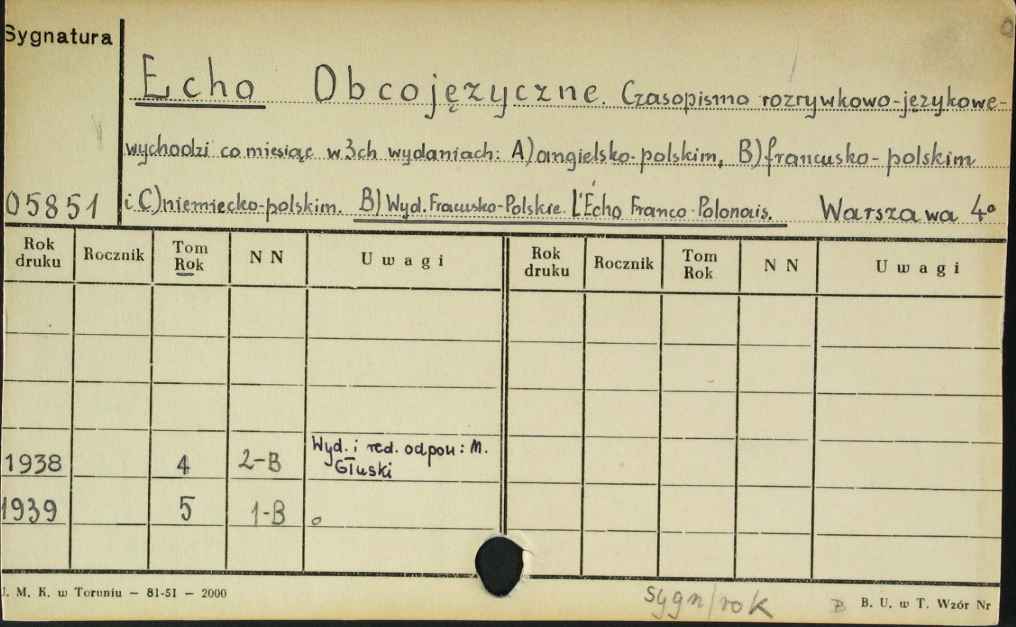 Sygnatura
Echo Obcojęzyczne. Czasopismo rozrywkowo-językowe-
wychodzi co miesiąc w 3ch wydaniach: A) angielsko-polskim, B) francusko-polskim
05851 i C) niemiecko-polskim. B) Wyd. Fracusko-Polskie L'Écho Franco-Polonais. Warszawa 4°
Rok druku Rocznik Tom Rok N N Uwagi Rok druku Rocznik Tom Rok N N Uwagi
1938 4 2-B Wyd. i red. odpow: M. Głuski
1939 5 1-B
J. M. K. w Toruniu — 81-51 — 2000
sygn/rok
B. U. w T. Wzór Nr